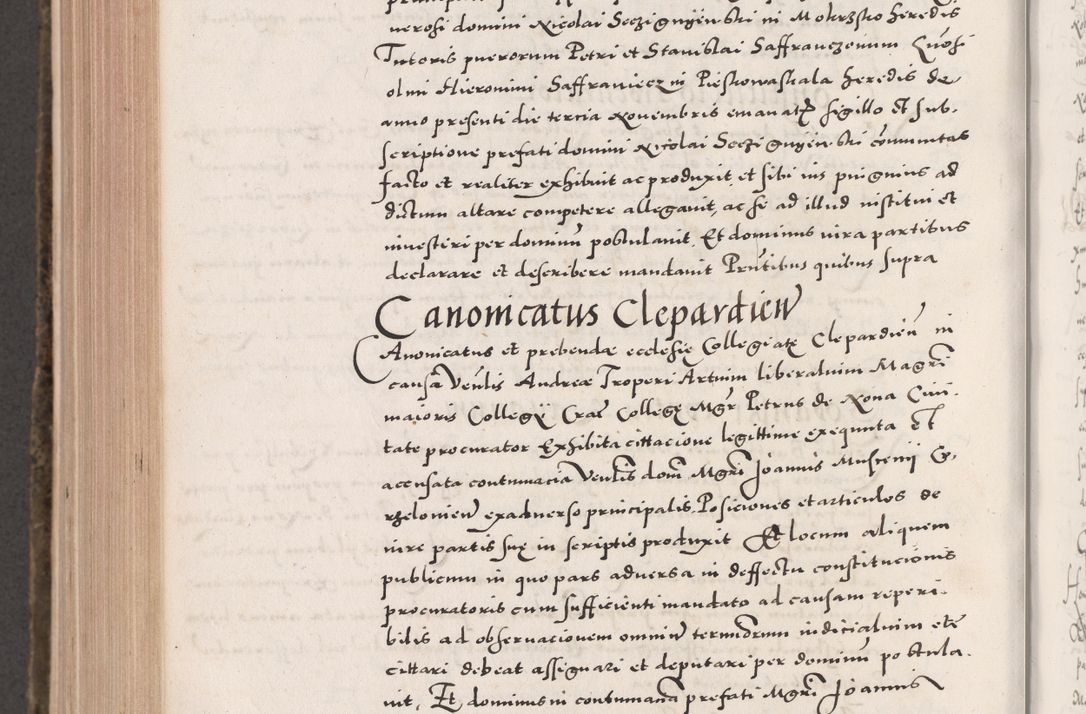 nerosi domini Nicolai Seczignÿewski in Mokrzsko heredis
Tutoris puerorum Petri et Stanislai Saffranczonum
olim Hieronimi Saffraniecz in Pieskowaskala heredis de
anno presenti die tercia Novembris emanatę sigillo et sub-
scriptione prefati domini Nicolai Seczignÿewski
facto et realiter exhibuit ac produxit et sibi ius pinguius ad
dictum altare competere allegavit, ac se ad illud institui et
investiri per dominū postulavit. Et dominus iura partibus
declarare et describere mandavit Prntibus quibus supra
Canonicatus Clepardien
Canonicatus et prebendæ ecclesie Collegiatę Clepardien in
causa Venlis Andreæ Troperi Artium liberalium Magri
maioris Collegÿ Crac Collegę Mgr Petrus de Xona Civi-
tate procurator Exhibita cittacione legittime exequuta Et
accusata contumacia Venlis dom Mgri Joannis Muscenii
exadverso principalis. Posiciones et articulos de
iure partis suę in scriptis produxit Et locum aliquem
publicum in quo pars adversa in deffectu constitucionis
procuratoris cum sufficienti mandato ad causam reperi-
bilis ad observacionem omniū terminorum iudicialium etc
cittari debeat assignari et deputari per dominū postula-
vit, Et dominus in contumacia prefati Mgri Joannis